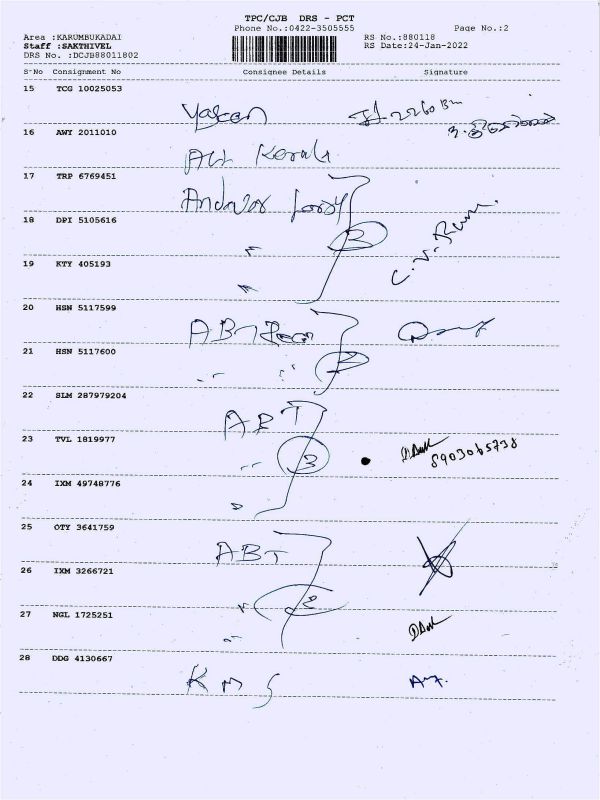 TPC/CJB DRS - PCT
Phone No.:0422-3505555 Page No.:2
Area :KARUMBUKADAI RS No.:880118
Staff :SAKTHIVEL RS Date:24-Jan-2022
DRS No. :DCJB88011802
S'No Consignment No Consignee Details Signature
15 TCG 10025053
16 AWY 2011010
All Kerala
17 TRP 6769451
18 DPI 5105616
3
19 KTY 405193
C.V.
20 HSN 5117599
ABT
21 HSN 5117600
2
22 SLM 287979204
ABT
23 TVL 1819977
3 8903065738
24 IXM 49748776
25 OTY 3641759
ABT
26 IXM 3266721
27 NGL 1725251
28 DDG 4130667
KMS